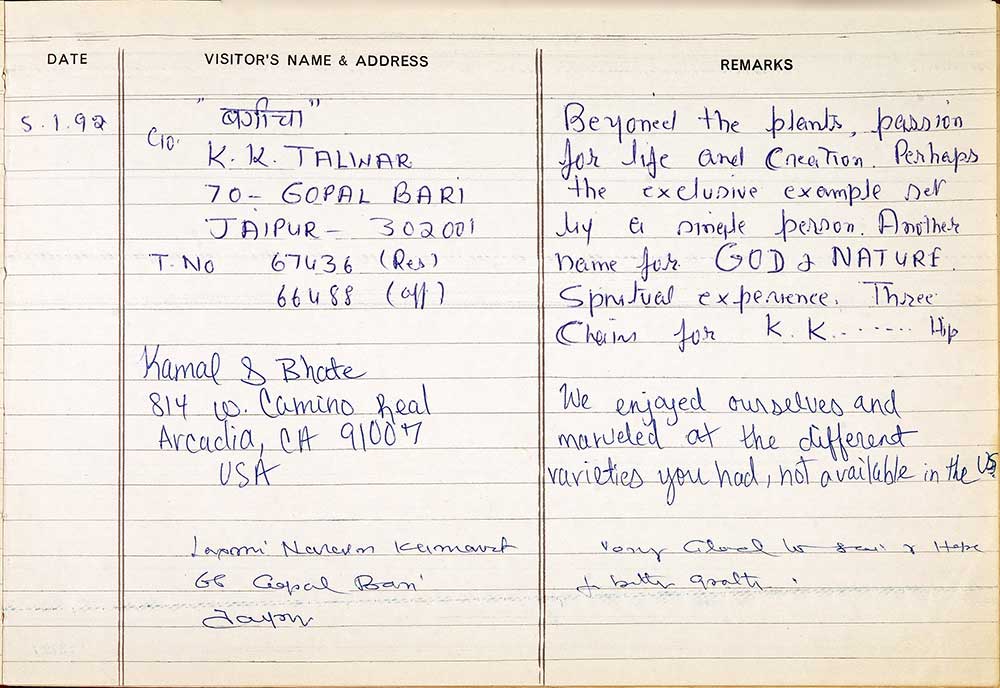 DATE
VISITOR'S NAME & ADDRESS
REMARKS
5.1.92
"बगीचा"
C/o.
K. K. TALWAR
70- GOPAL BARI
JAIPUR- 302001
T. No 67436 (Res)
66488 (off)
Beyoned the plants, passion
for life and Creation. Perhaps
the exclusive example set
by a single person. Another
name for GOD & NATURE.
Spritual experience. Three
for K. K.......
Kamal S Bhate
814 W. Camino Real
Arcadia, CA 91007
USA
We enjoyed ourselves and
marveled at the different
varieties you had, not available in the US.
Laxmi Narayan Kumawat
68 Gopal Bari
Jaipur
Very Glad to & Hope
better